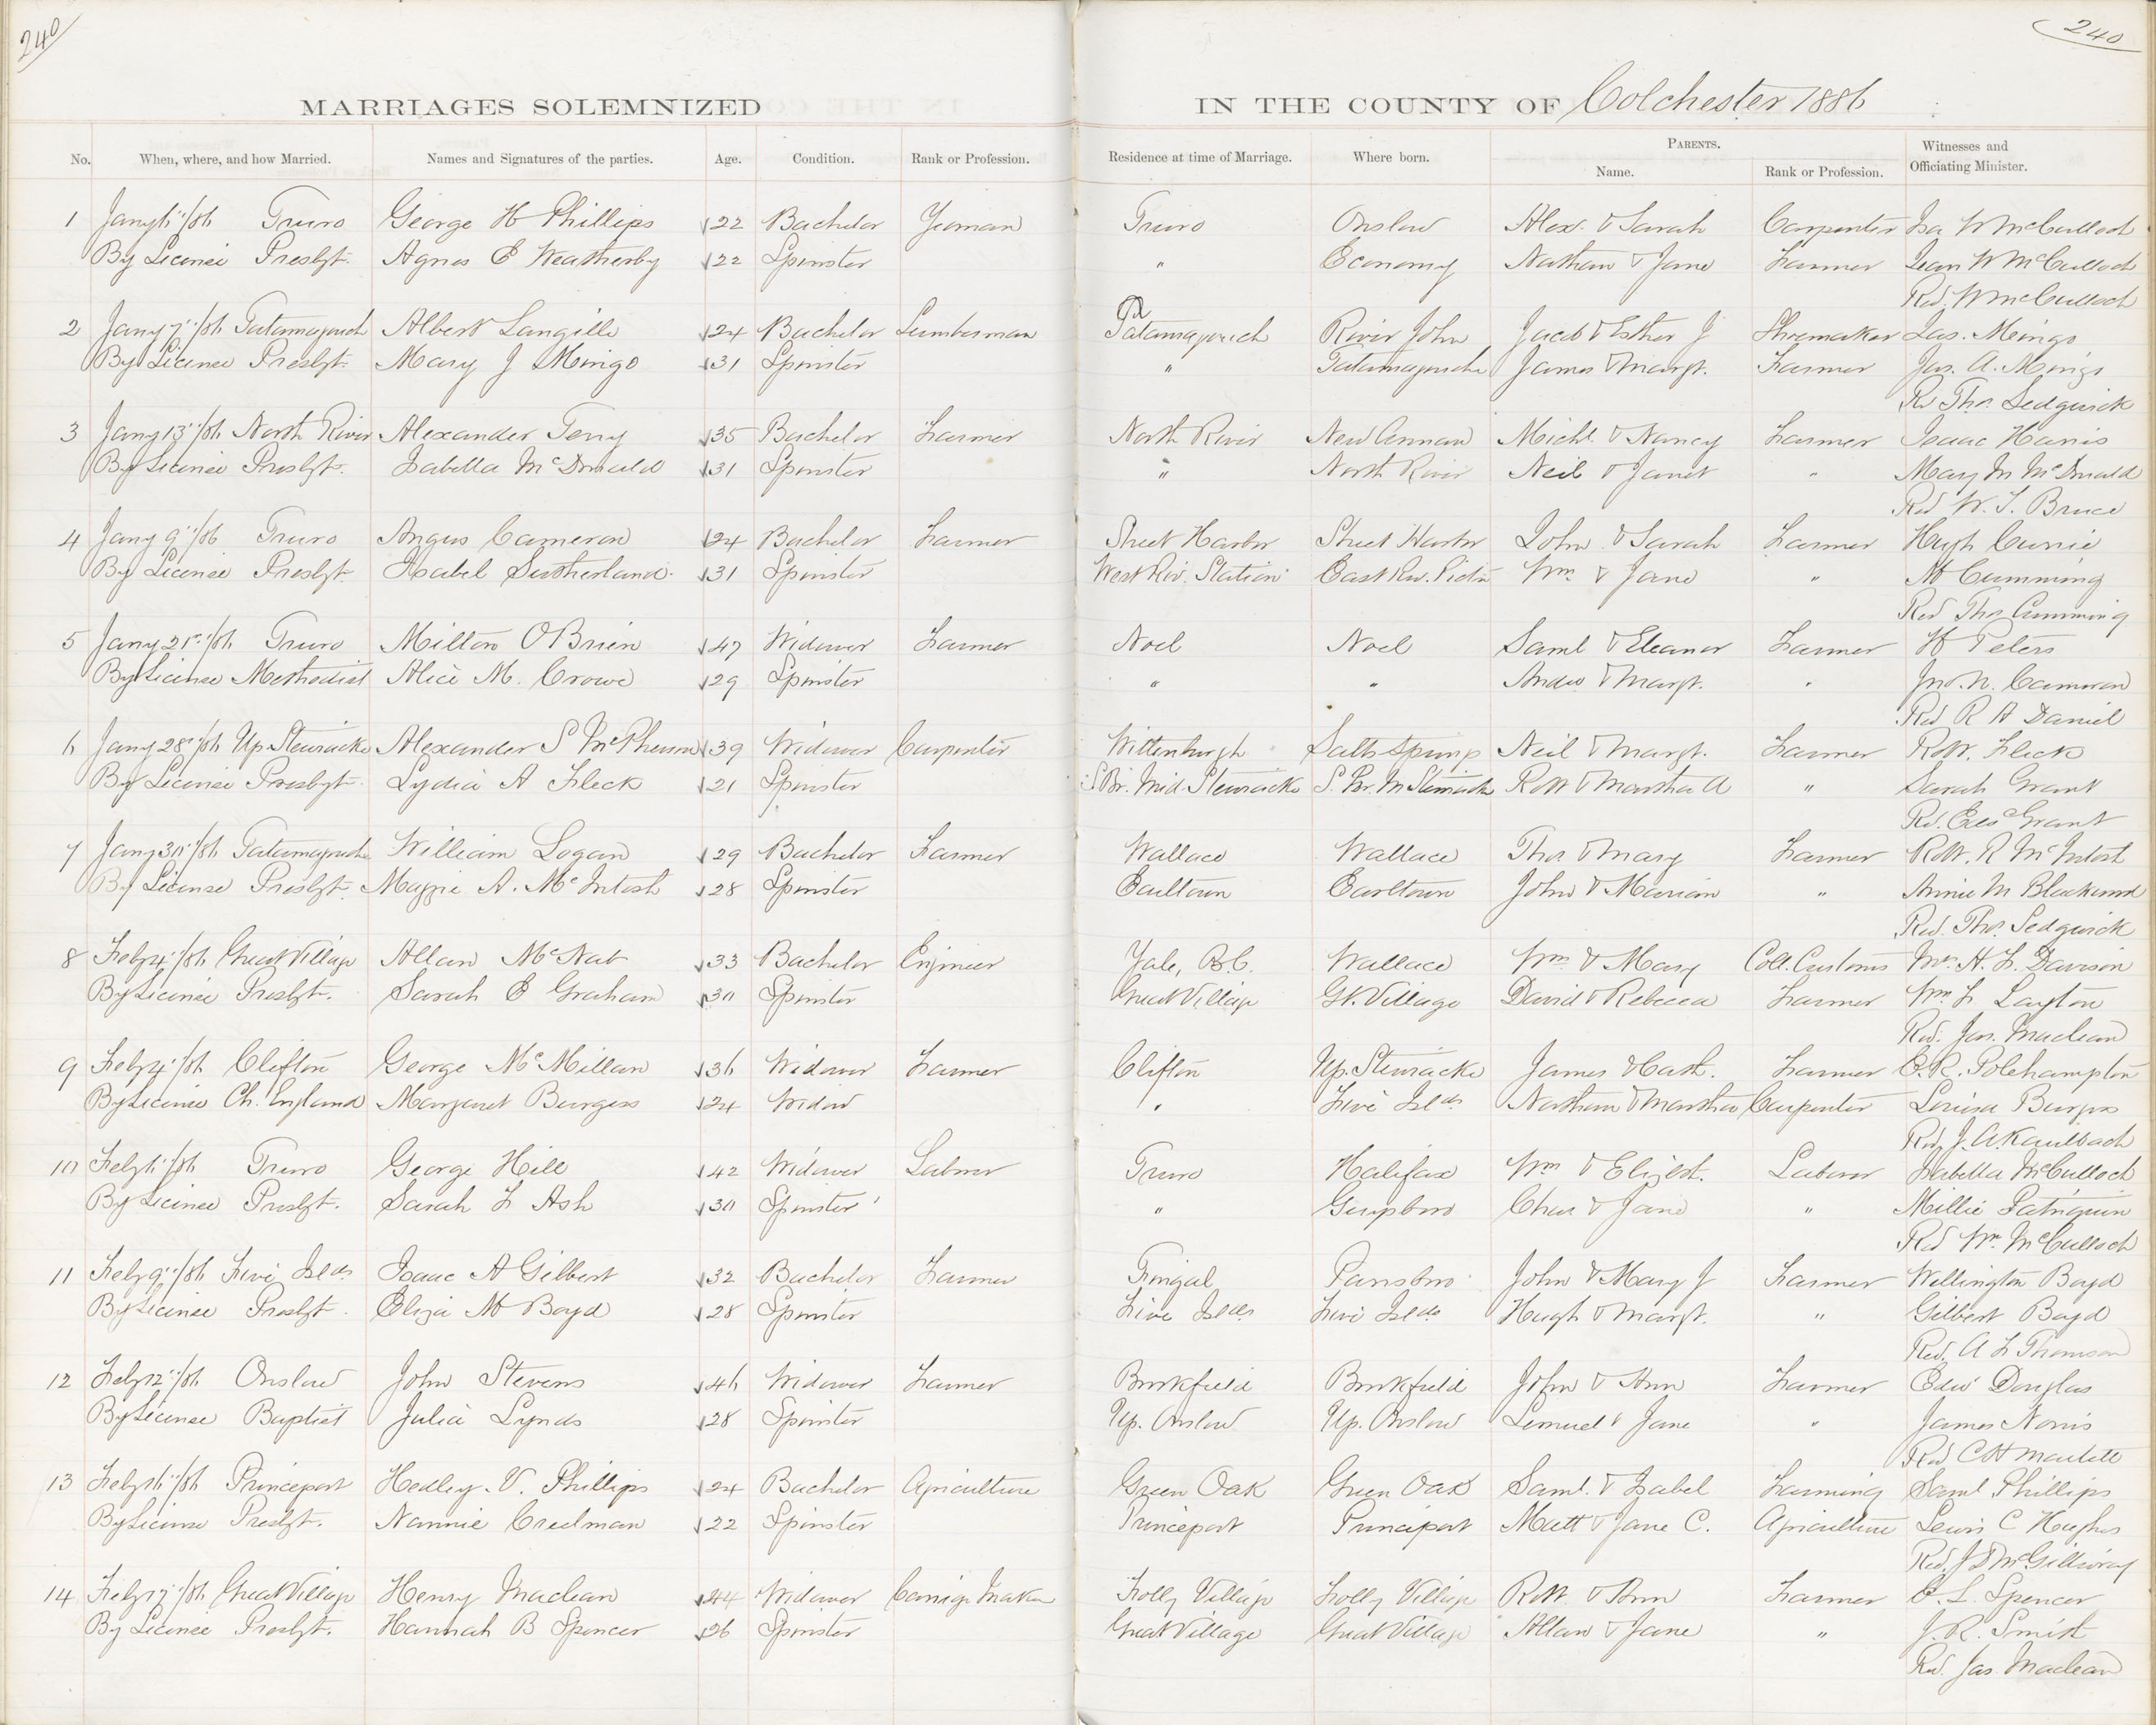 240
240
MARRIAGES SOLEMNIZED IN THE COUNTY OF Colchester 1886
No. When, where, and how Married. Names and Signatures of the parties. Age. Condition. Rank or Profession. Residence at time of Marriage. Where born. PARENTS. Name. Rank or Profession. Witnesses and Officiating Minister.
1 Jany 6"/86 Truro George H Phillips 22 Bachelor Yeoman Truro Onslow Alex. & Sarah Carpenter Isa W McCulloch
By License Presbyt. Agnes E Weatherby 22 Spinster " Economy Nathan & Jane Farmer Jean W McCulloch
Rev. W McCulloch
2 Jany 7"/86 Tatamagouch Albert Langille 24 Bachelor Lumberman Tatamagouch River John Jacob & Esther J Shoemaker Jas. Mingo
By License Presbyt. Mary J Mingo 31 Spinster " Tatamagouche James & Margt. Farmer Jas. A. Mingo
Rv Thos. Sedgwick
3 Jany 13"/86 North River Alexander Terry 35 Bachelor Farmer North River New Annan Michl. & Nancy Farmer Isaac Harris
By License Presbyt. Isabella McDonald 31 Spinster " North River Neil & Janet " Mary M McDonald
Rev W. T. Bruce
4 Jany 9"/86 Truro Angus Cameron 24 Bachelor Farmer Sheet Harbor Sheet Harbor John & Sarah Farmer Hugh Currie
By License Presbyt. Isabel Sutherland 31 Spinster West Riv. Station East Riv. Pictu Wm & Jane " M Cumming
Rev Thos Cumming
5 Jany 21st/86 Truro Milton OBrien 47 Widower Farmer Noel Noel Saml & Eleanor Farmer H Peters
By License Methodist Alice M. Crowe 29 Spinster " " Andw & Margt. " Jno. N. Cameron
Rev R A Daniel
6 Jany 28"/86 Up. Stewiacke Alexander S McPherson 39 Widower Carpenter Wittenburgh Salt Springs Neil & Margt. Farmer Robt. Fleck
By License Presbyt. Lydia A Fleck 21 Spinster S Br. Mid. Stewiacke S. Br. M Stewiacke Robt & Martha A " Sarah Grant
Rv. Edw Grant
7 Jany 30"/86 Tatamagouche William Logan 29 Bachelor Farmer Wallace Wallace Thos & Mary Farmer Robt. R McIntosh
By License Presbyt. Maggie A. McIntosh 28 Spinster Earltown Earltown John & Marian " Annie M Blackwood
Rev. Thos. Sedgwick
8 Feby 4"/86 Great Village Allan McNab 33 Bachelor Engineer Yale, B.C. Wallace Wm & Mary Coll. Customs Mrs. H. F. Davison
By License Presbyt. Sarah E Graham 30 Spinster Great Village Gt. Village David & Rebecca Farmer Wm F. Layton
Rev. Jas. Maclean
9 Feby 4"/86 Clifton George McMillan 36 Widower Farmer Clifton Up. Stewiacke James & Cath. Farmer C. R. Polehampton
By License Ch. England Margaret Burgess 24 Widow " Five Islds Nathan & Martha Carpenter Louisa Burgess
Rev J. A Kaulbach
10 Feby 6"/86 Truro George Hill 42 Widower Laborer Truro Halifax Wm & Elizbt. Laborer Isabella McCulloch
By License Presbyt. Sarah F Ash 30 Spinster " Guysboro Chas & Jane " Millie Patriquin
Rev Wm McCulloch
11 Feby 9"/86 Five Islds Isaac A Gilbert 32 Bachelor Farmer Fingal Parrsboro John & Mary J Farmer Wellington Boyd
By License Presbyt. Eliza M Boyd 28 Spinster Five Islds Five Islds Hugh & Margt. " Gilbert Boyd
Rev. A F Thomson
12 Feby 12"/86 Onslow John Stevens 46 Widower Farmer Brookfield Brookfield John & Ann Farmer Edw Douglas
By License Baptist Julia Lynds 28 Spinster Up. Onslow Up. Onslow Lemuel & Jane " James Norris
Rev C H Martell
13 Feby 16"/86 Princeport Hedley V. Phillips 24 Bachelor Agriculture Green Oak Green Oak Saml. & Isabel Farming Saml Phillips
By License Presbyt. Nannie Creelman 22 Spinster Princeport Princeport Matt & Jane C. Agriculture Lewis C Hughes
Rev. J D McGillivray
14 Feby 17"/86 Great Village Henry Maclean 44 Widower Carriage Maker Folly Village Folly Village Robt. & Ann Farmer C. L. Spencer
By License Presbyt. Hannah B Spencer 26 Spinster Great Village Great Village Allan & Jane " J. R. Smith
Rev. Jas. Maclean